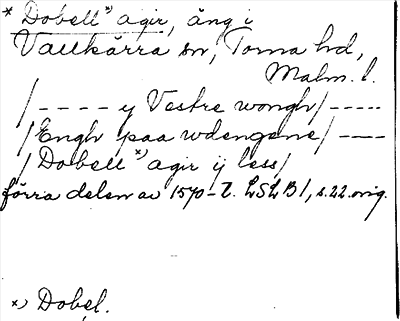 * Dobell *) agir, äng i
Vallkärra sn, Torna hd,
Malm. l.
/---- y Vestre wongh/-----
/Engh paa wdengene/----
/Dobell *) agir ij less/
förra delen av 1570-t. LSLB1, s. 22. orig.
*) Dobel.